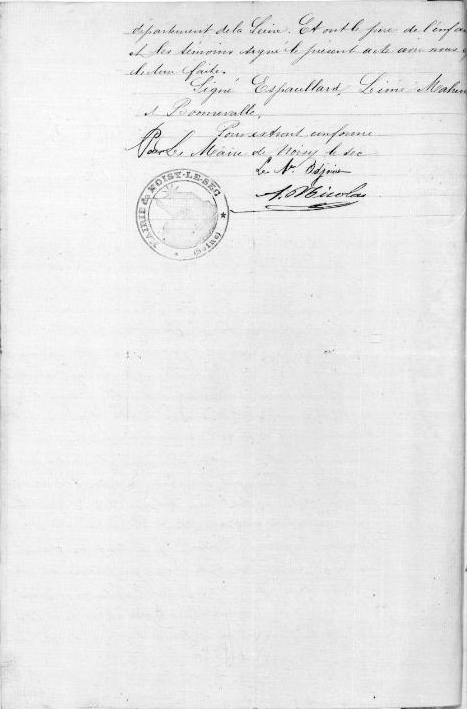 département de la Seine. Et ont le père de l'enfan
et les témoins signé le présent acte avec nous
lecture faite.
Signé Espaullard, Mahieu
& Bonnevalle.
Pour extrait conforme
Pour Le Maire de Noisy le sec
Le 1er Adjoint
A. Nicolas
MAIRIE de NOISY-LE-SEC
(Seine)